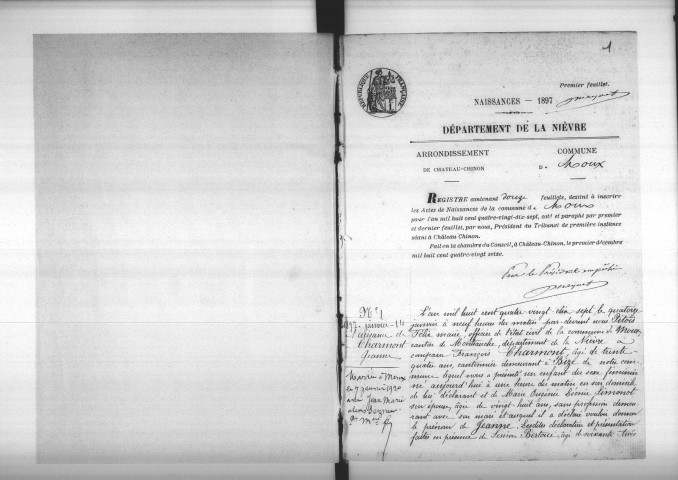 1
Premier feuillet.
NAISSANCES — 1897
RÉPUBLIQUE FRANÇAISE
DÉPARTEMENT DE LA NIÈVRE
ARRONDISSEMENT
DE CHATEAU-CHINON
COMMUNE
D e Moux
REGISTRE contenant douze feuillets, destiné à inscrire
les Actes de Naissances de la commune de Moux
pour l'an mil huit cent quatre-vingt-dix-sept, coté et paraphé par premier
et dernier feuillet, par nous, Président du Tribunal de première instance
séant à Château-Chinon.
Fait en la chambre du Conseil, à Château-Chinon, le premier décembre
mil huit cent quatre-vingt seize.
Pour le Président empêché
No 1
janvier 14
Naissance de
Charmont
Jeanne
Mariée à Moux
le 7 janvier 1920
avec Jean Marie
L'an mil huit cent quatre vingt dix sept le quatorze
janvier à neuf heures du matin par devant nous
Félix Marie, officier de l'état civil de la commune de Moux
canton de Montsauche, département de la Nièvre a
comparu François Charmont, âgé de trente
quatre ans, cantonnier demeurant à Bizé de notre com-
mune lequel nous a présenté un enfant du sexe féminin
né aujourd'hui à une heure du matin en son domicile
de lui déclarant et de Marie Eugénie Léonie Simonot
son épouse, âgée de vingt-huit ans, sans profession demeu-
rant avec son mari et auquel il a déclaré vouloir donner
le prénom de Jeanne. Lesdites déclaration et présentation
faites en présence de Simon Bertoux, âgé de soixante trois